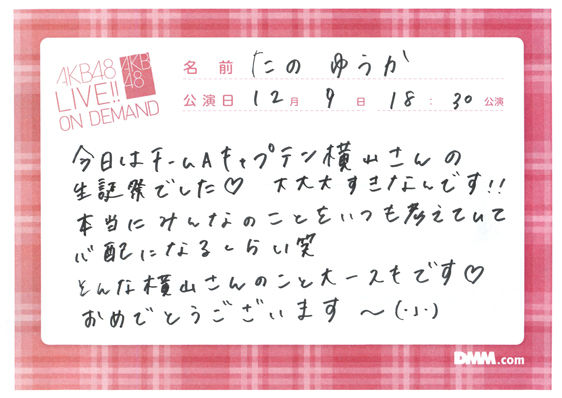 AKB48
LIVE!!
ON DEMAND
AKB
48
名前 たの ゆうか
公演日 12月 9日 18:30公演
今日はチームAキャプテン横山さんの
生誕祭でした♡ 大大大すきなんです!!
本当にみんなのことをいつも考えていて
心配になるくらい笑
そんな横山さんのこと大ースキです♡
おめでとうございます 〜(・ω・)
DMM.com